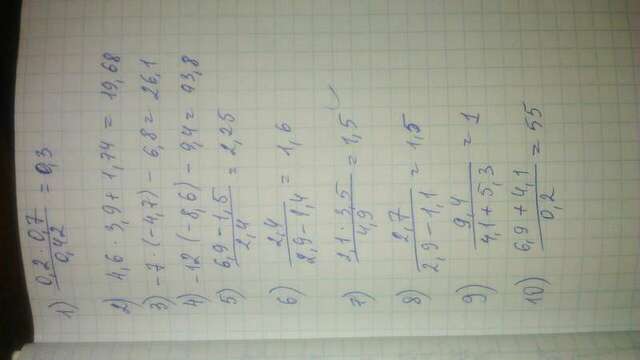 1) 0,2 · 0,7 / 0,42 = 0,3
2) 4,6 · 3,9 + 1,74 = 19,68
3) -7 · (-4,7) - 6,8 = 26,1
4) -12 (-8,6) - 9,4 = 93,8
5) 6,9 - 1,5 / 2,4 = 2,25
6) 2,4 / 2,9 - 1,4 = 1,6
7) 2,1 · 3,5 / 4,9 = 1,5
8) 2,7 / 2,9 - 1,1 = 1,5
9) 9,4 / 4,1 + 5,3 = 1
10) 6,9 + 4,1 / 0,2 = 55